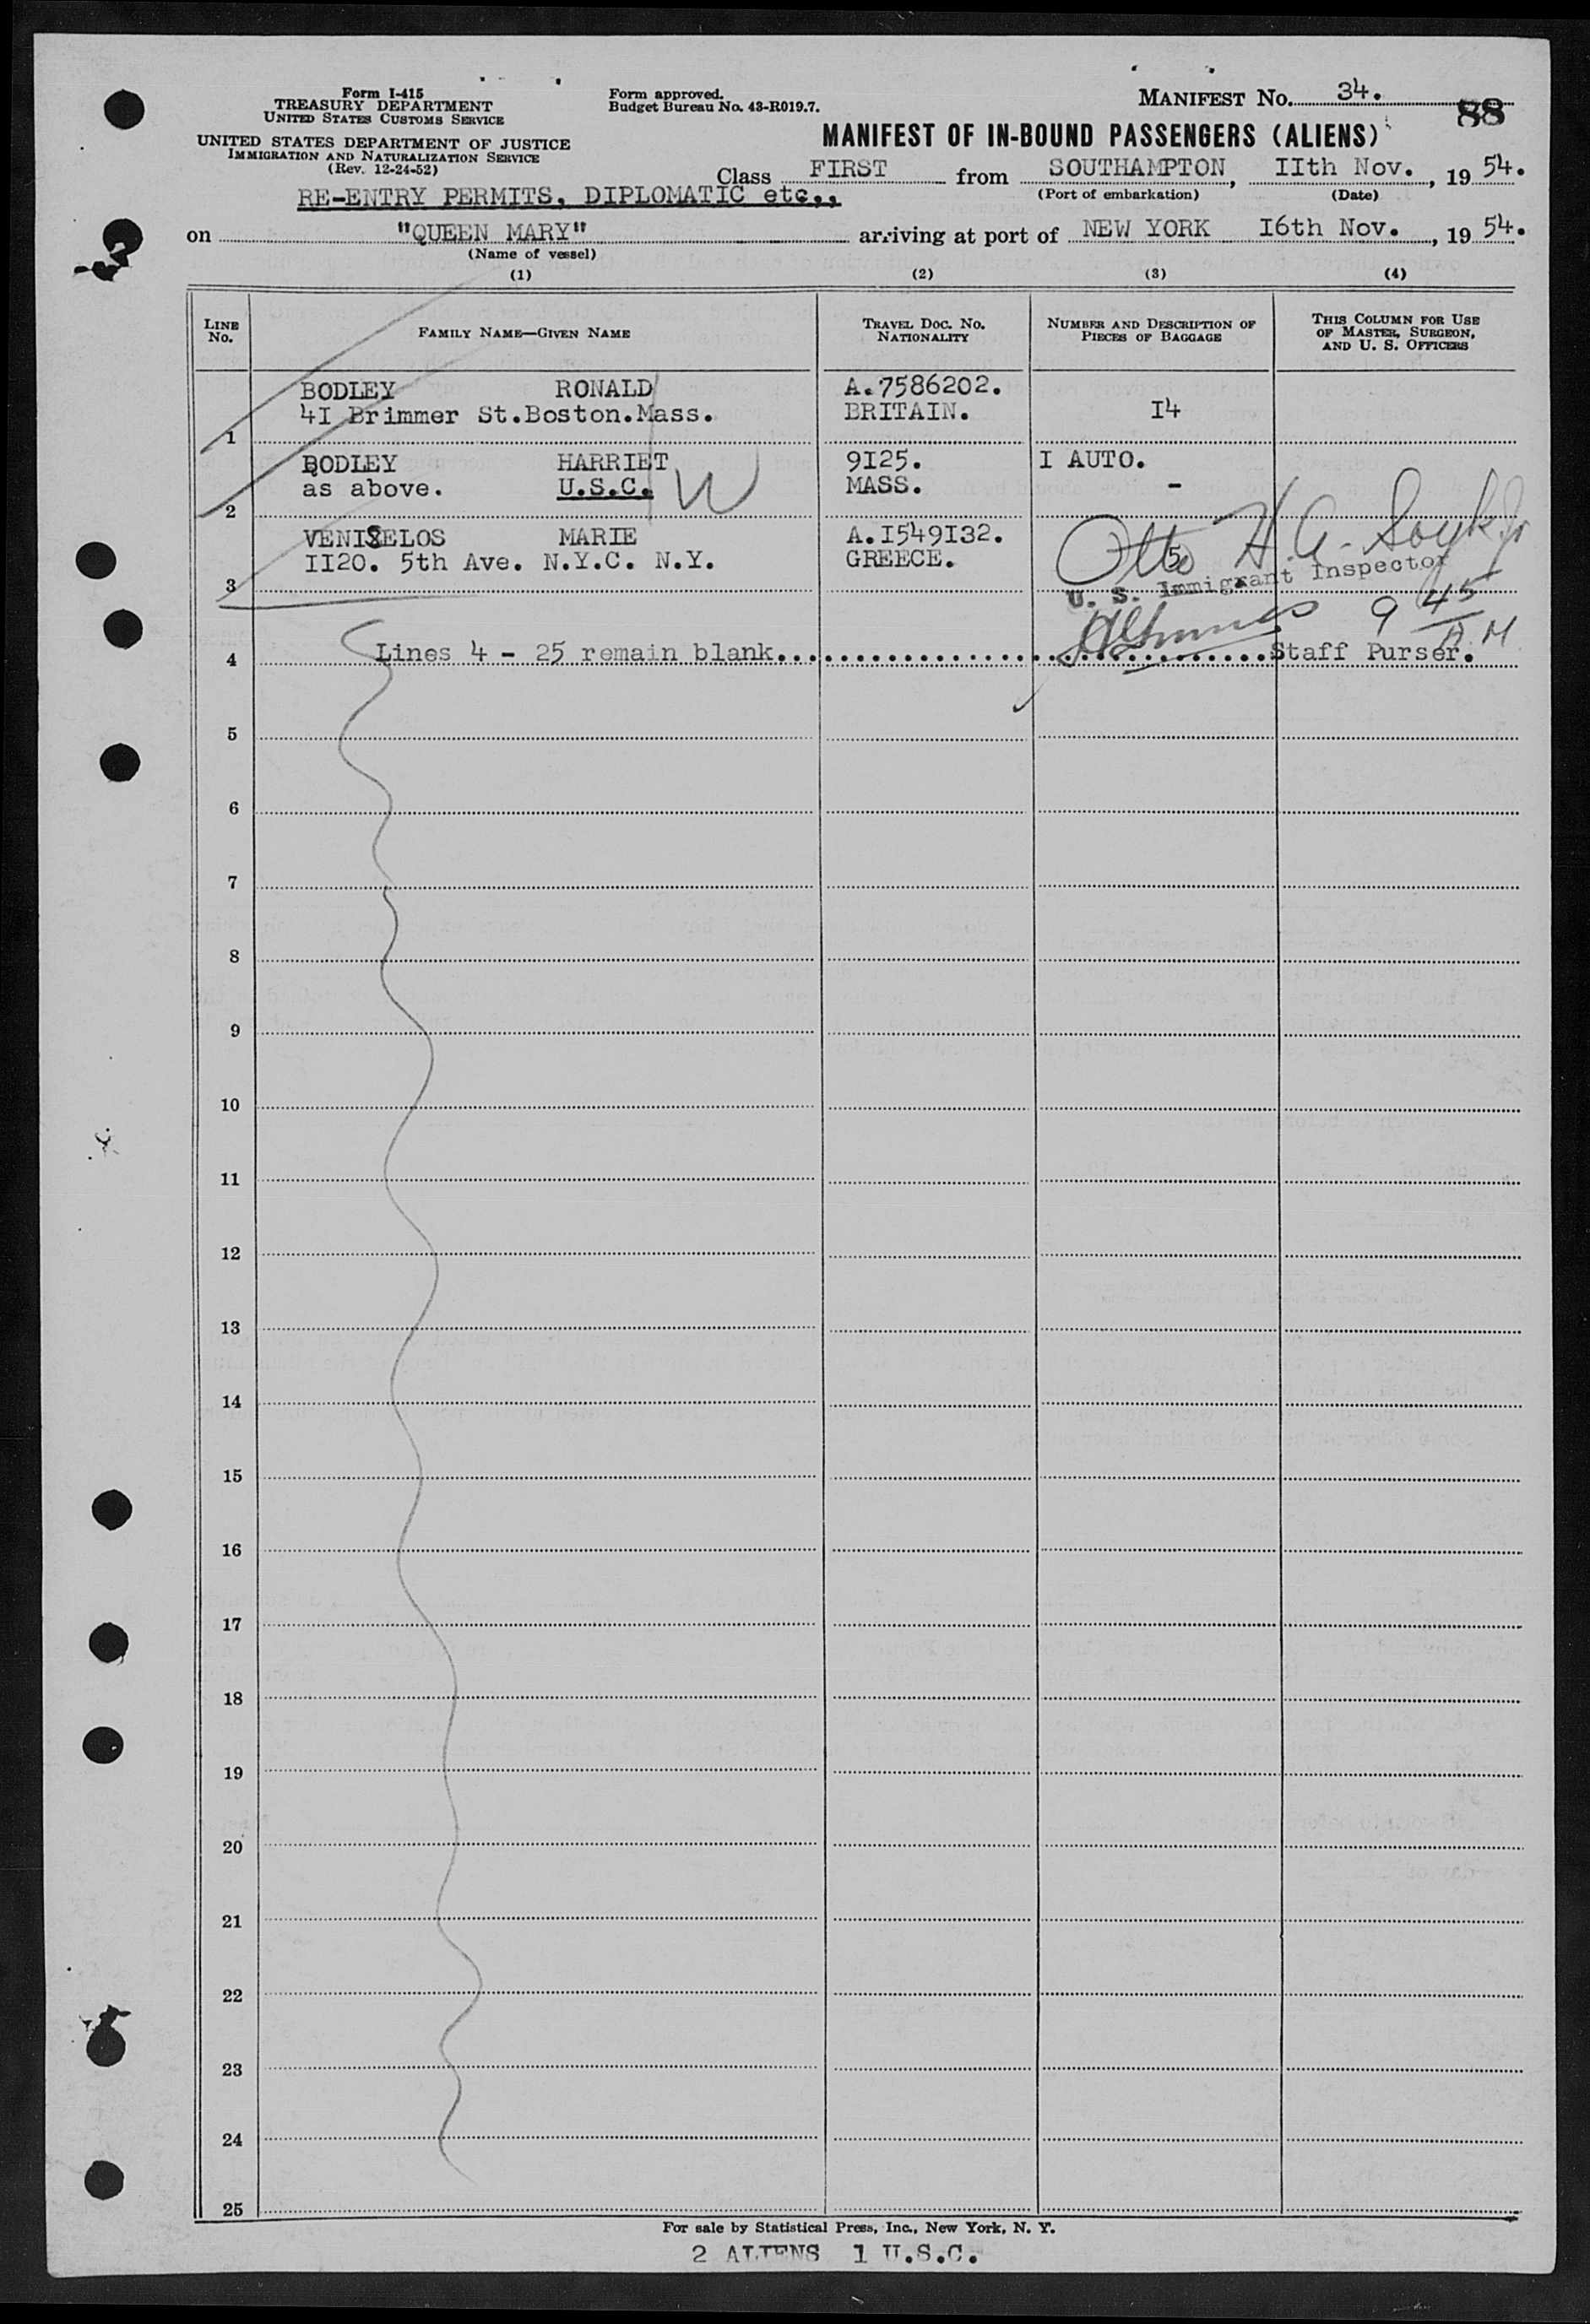 Form I-415
TREASURY DEPARTMENT
UNITED STATES CUSTOMS SERVICE
UNITED STATES DEPARTMENT OF JUSTICE
IMMIGRATION AND NATURALIZATION SERVICE
(Rev. 12-24-52)
Form approved.
Budget Bureau No. 43-R019.7.
MANIFEST No. 34.
88
MANIFEST OF IN-BOUND PASSENGERS (ALIENS)
Class FIRST from SOUTHAMPTON, IIth Nov., 19 54.
(Port of embarkation) (Date)
RE-ENTRY PERMITS, DIPLOMATIC etc.,
on "QUEEN MARY" arriving at port of NEW YORK I6th Nov., 19 54.
(Name of vessel)
(1) (2) (3) (4)
LINE No. FAMILY NAME—GIVEN NAME TRAVEL DOC. No. NATIONALITY NUMBER AND DESCRIPTION OF PIECES OF BAGGAGE THIS COLUMN FOR USE OF MASTER, SURGEON, AND U. S. OFFICERS
BODLEY RONALD A.7586202.
41 Brimmer St.Boston.Mass. BRITAIN. I4
1
BODLEY HARRIET 9I25. I AUTO.
as above. U.S.C. W MASS. -
2
VENISELOS MARIE A.I549I32.
II20. 5th Ave. N.Y.C. N.Y. GREECE. 5
3
Otto H.A. Soyk Jr
U. S. Immigrant Inspector
9 45 A.M
4 Lines 4 - 25 remain blank. Staff Purser.
5
6
7
8
9
10
11
12
13
14
15
16
17
18
19
20
21
22
23
24
25
For sale by Statistical Press, Inc., New York, N. Y.
2 ALIENS 1 U.S.C.